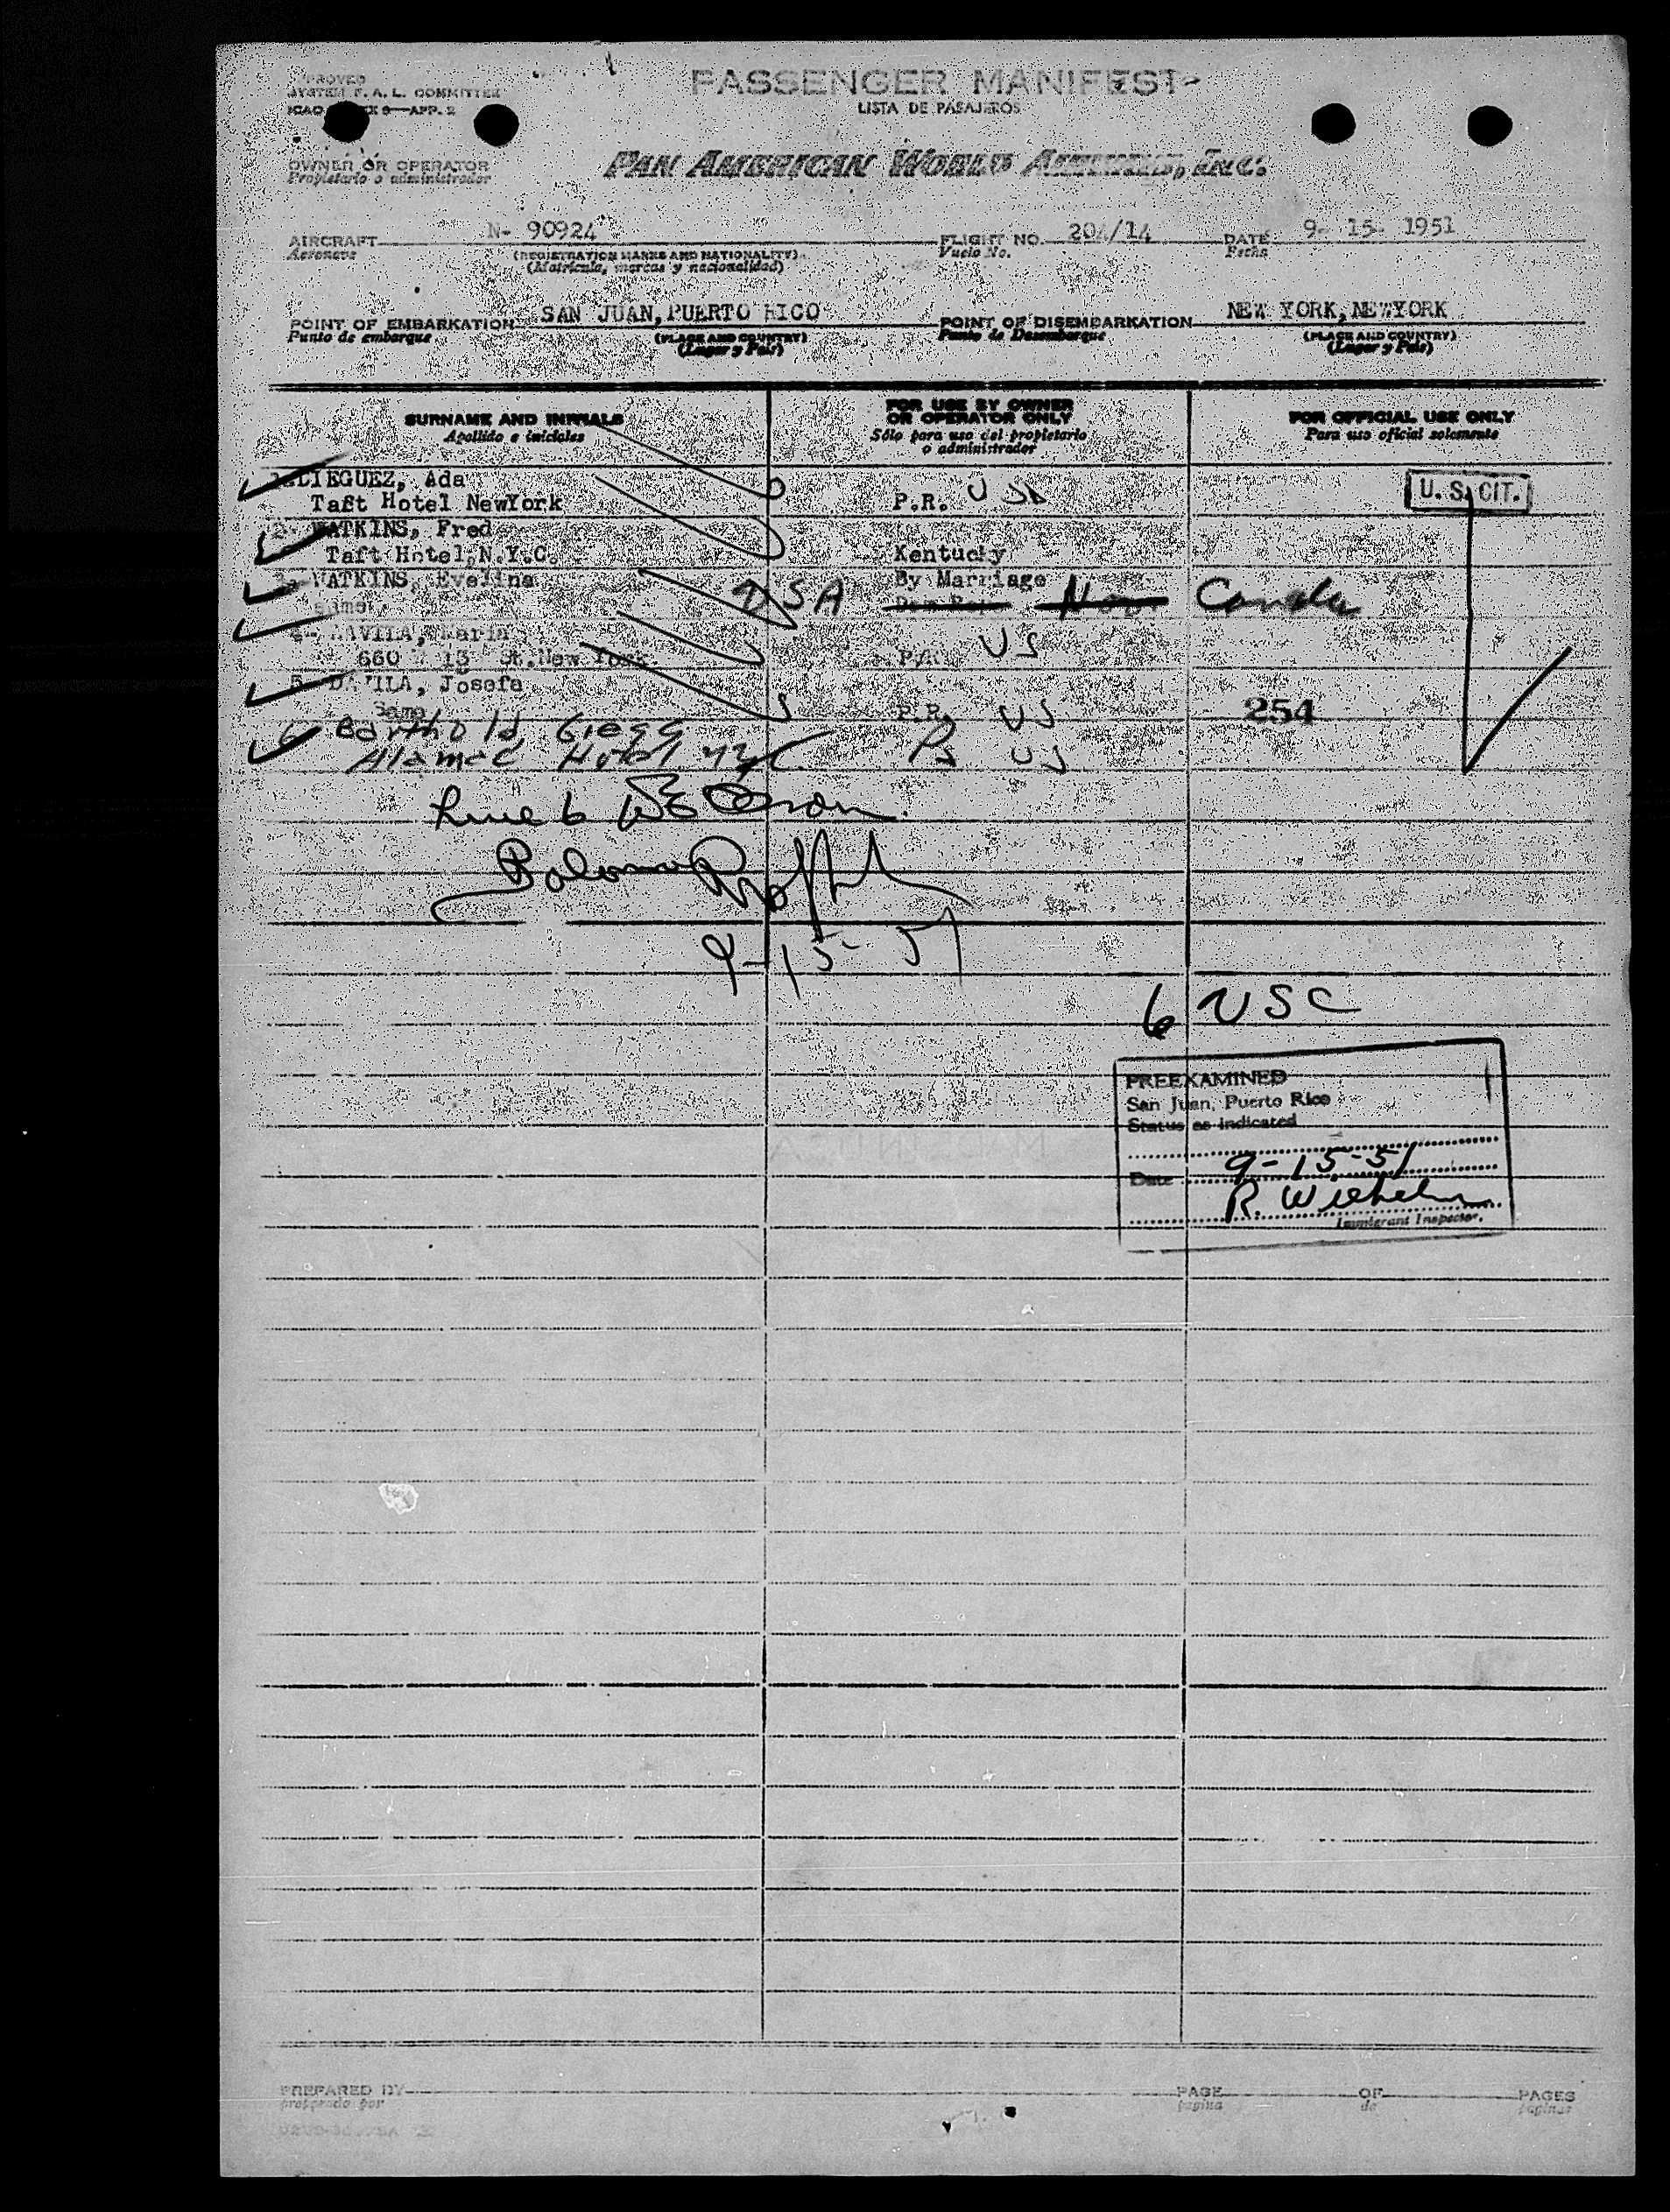 PASSENGER MANIFEST
LISTA DE PASAJEROS
SYSTEM F. A. L. COMMITTEE
APP. 2
OWNER OR OPERATOR
Propietario o administrador
PAN AMERICAN WORLD AIRWAYS, INC.
AIRCRAFT N- 90924 FLIGHT NO. 204/14 DATE 9- 15- 1951
Aeronave (REGISTRATION MARKS AND NATIONALITY) Vuelo No. Fecha
(Matrícula, marcas y nacionalidad)
POINT OF EMBARKATION SAN JUAN, PUERTO RICO POINT OF DISEMBARKATION NEW YORK, NEWYORK
Punto de embarque (PLACE AND COUNTRY) Punto de Desembarque (PLACE AND COUNTRY)
(Lugar y País) (Lugar y País)
SURNAME AND INITIALS FOR USE BY OWNER OR OPERATOR ONLY FOR OFFICIAL USE ONLY
Apellido e iniciales Sólo para uso del propietario o administrador Para uso oficial solamente
Ada U. S. CIT.
Taft Hotel NewYork P.R.
WATKINS, Fred
Taft Hotel, N.Y.C. Kentucky
WATKINS, Evelina By Marriage
same USA
DAVILA, Maria US
660 13 St. New York P.R.
5- DAVILA, Josefa
Same P.R. US 254
6 Barthold
Hotel US
9-15-51
6 USC
PREEXAMINED
San Juan, Puerto Rico
Status as indicated
Date 9-15-51
R. Wilhelm
Immigrant Inspector.
PREPARED BY PAGE OF PAGES
preparado por página de páginas